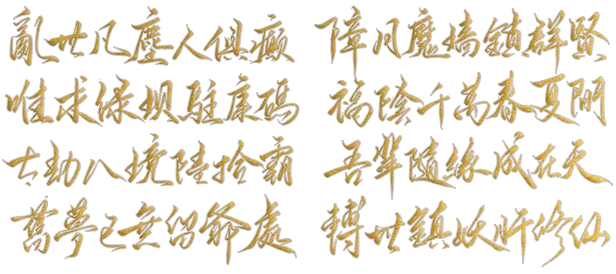 亂世凡塵人俱癲 障月魔墻鎖群賢
唯求绿坝駐康碼 福陰千萬春夏
劫八境陸拾霸 吾輩隨緣成在天
舊夢已無留爺處 轉世鎮妖修仙